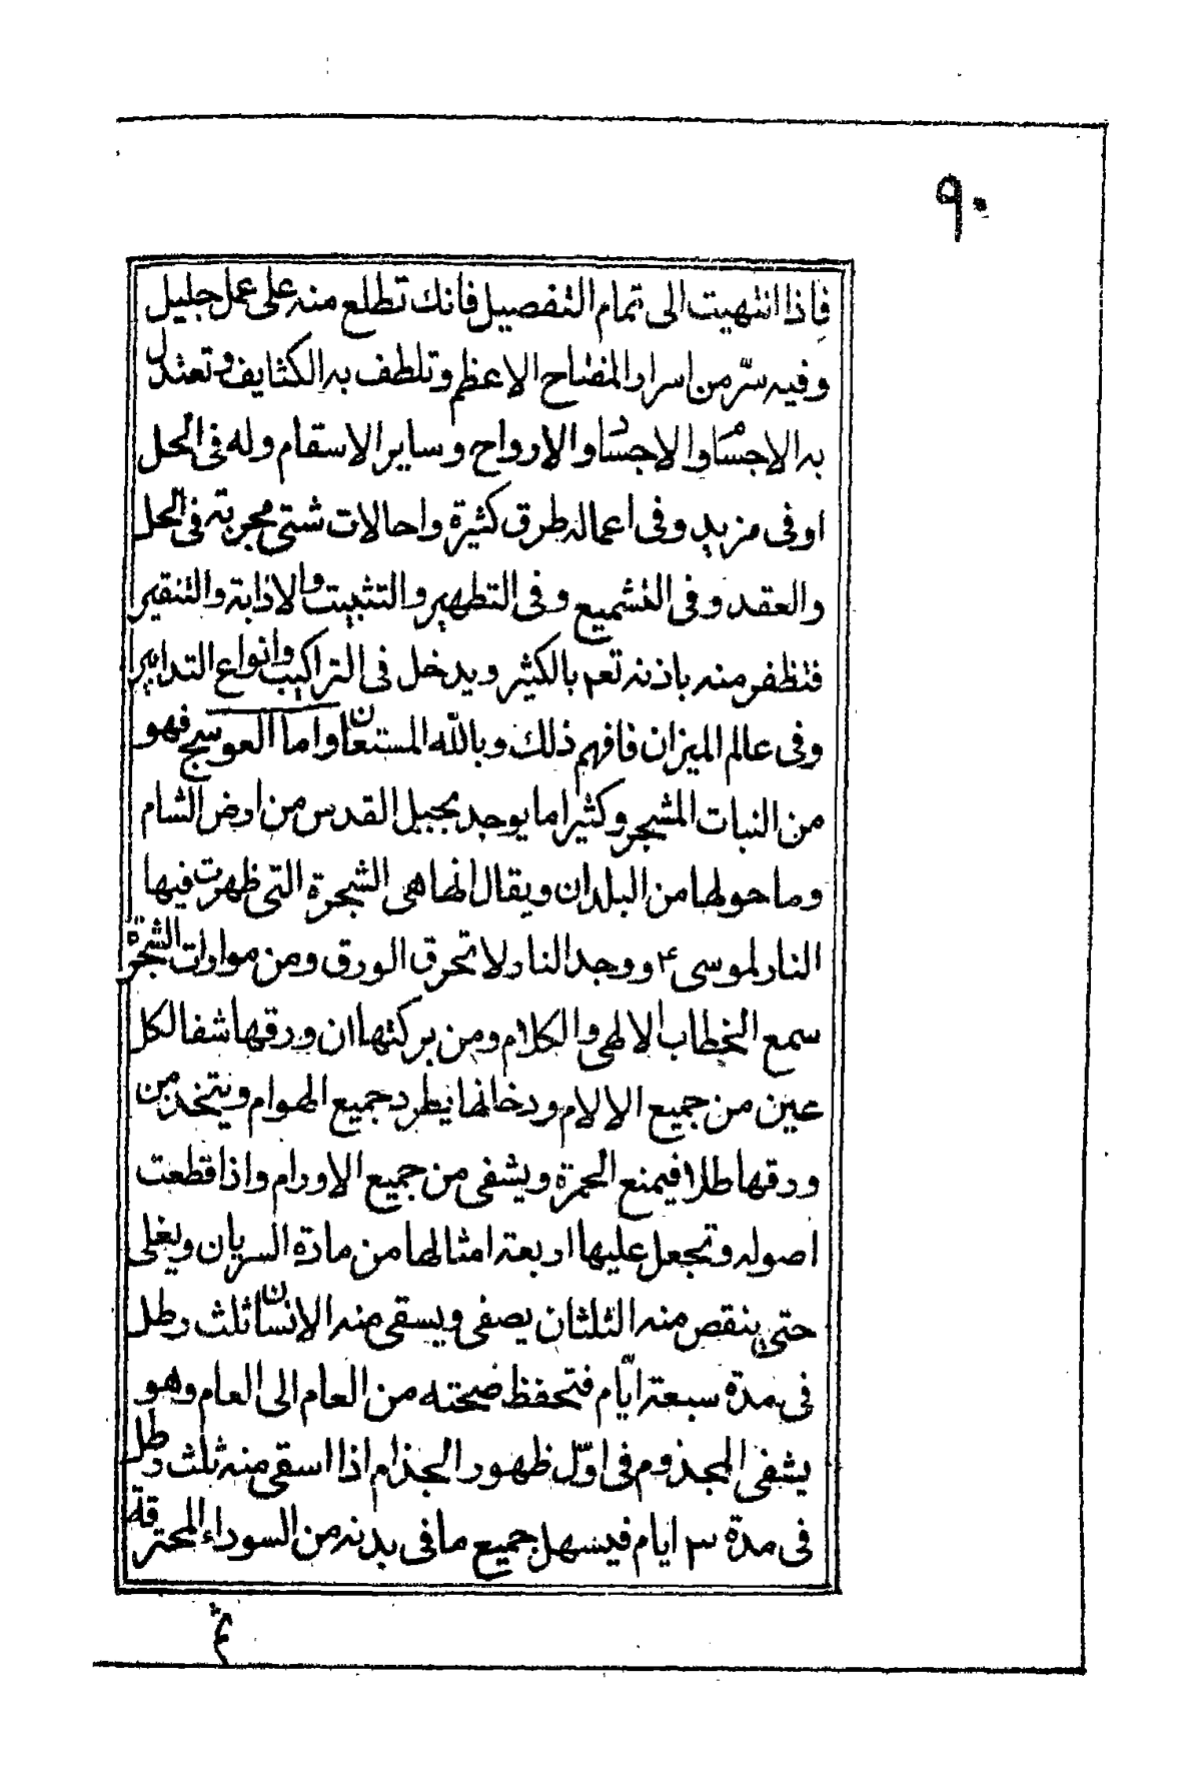 ٩٠
فاذا انتهيت الى تمام التفصيل فانك تطلع منه على عمل جليل
وفيه سرّ من اسرار المفتاح الاعظم وتلطف به الكثايف وتعتدل
به الاجسام والاجساد والارواح وساير الاسقام وله فى الحل
اوفى مزيد وفى اعماله طرق كثيرة واحالات شتى مجربة فى الحل
والعقد وفى التشميع وفى التطهير والتثبيت والاذابة والتنقير
فتظفر منه باذنه تعم بالكثير ويدخل فى التراكيب وانواع التدابير
وفى عالم الميزان فافهم ذلك وبالله المستعان واما العوسج فهو
من النبات المشجر وكثيرا ما يوجد بجبل القدس من ارض الشام
وما حولها من البلدان ويقال انها هى الشجرة التى ظهرت فيها
النار لموسى ٤ ووجد النار لا تحرق الورق ومن موارات الشجرة
سمع الخطاب الالهى والكلام ومن بركتها ان ورقها شفا لكل
عين من جميع الالام ودخانها يطرد جميع الهوام ويتخذ من
ورقها طلاء فيمنع الحمرة ويشفى من جميع الاورام واذا قطعت
اصوله وتجعل عليها اربعة امثالها من مادة السريان ويغلى
حتى ينقص منه الثلثان يصفى ويسقى منه الانسان ثلث رطل
فى مدة سبعة ايّام فتحفظ صحته من العام الى العام وهو
يشفى المجذوم فى اوّل ظهور الجذام اذا اسقى منه ثلث رطل
فى مدة ٣ ايام فيسهل جميع ما فى بدنه من السوداء المحترقة
ثم